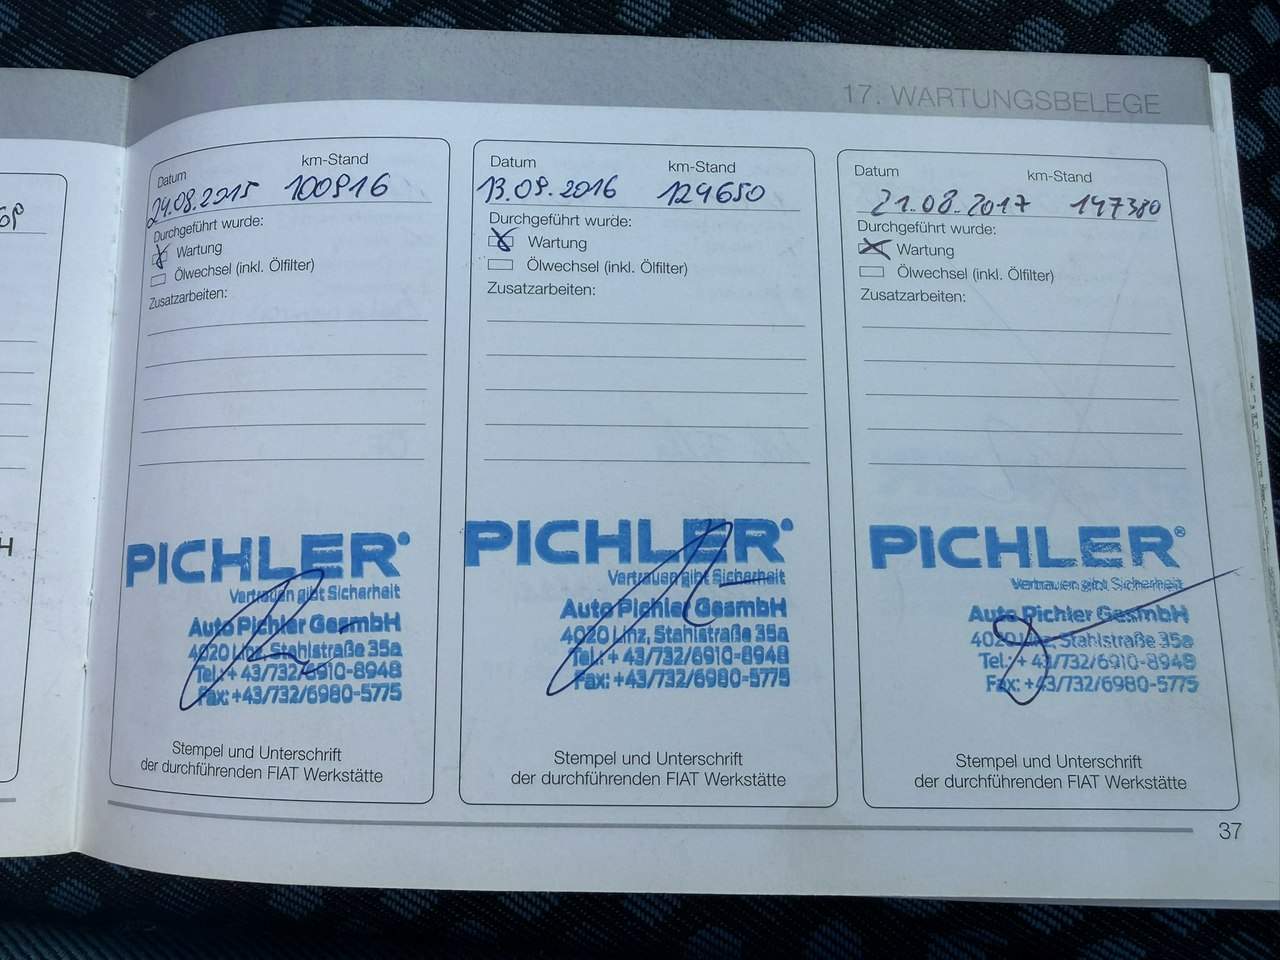 17. WARTUNGSBELEGE
Datum
km-Stand
24.08.2015 100916
Durchgeführt wurde:
Wartung
Ölwechsel (inkl. Ölfilter)
Zusatzarbeiten:
PICHLER®
Vertrauen gibt Sicherheit
Auto Pichler GesmbH
4020 Linz, Stahlstraße 35a
Tel.: +43/732/6910-8948
Fax: +43/732/6980-5775
Stempel und Unterschrift
der durchführenden FIAT Werkstätte
Datum
km-Stand
13.09.2016 124650
Durchgeführt wurde:
Wartung
Ölwechsel (inkl. Ölfilter)
Zusatzarbeiten:
PICHLER®
Vertrauen gibt Sicherheit
Auto Pichler GesmbH
4020 Linz, Stahlstraße 35a
Tel.: +43/732/6910-8948
Fax: +43/732/6980-5775
Stempel und Unterschrift
der durchführenden FIAT Werkstätte
Datum
km-Stand
21.08.2017 147380
Durchgeführt wurde:
Wartung
Ölwechsel (inkl. Ölfilter)
Zusatzarbeiten:
PICHLER®
Vertrauen gibt Sicherheit
Auto Pichler GesmbH
4020 Linz, Stahlstraße 35a
Tel.: +43/732/6910-8948
Fax: +43/732/6980-5775
Stempel und Unterschrift
der durchführenden FIAT Werkstätte
37